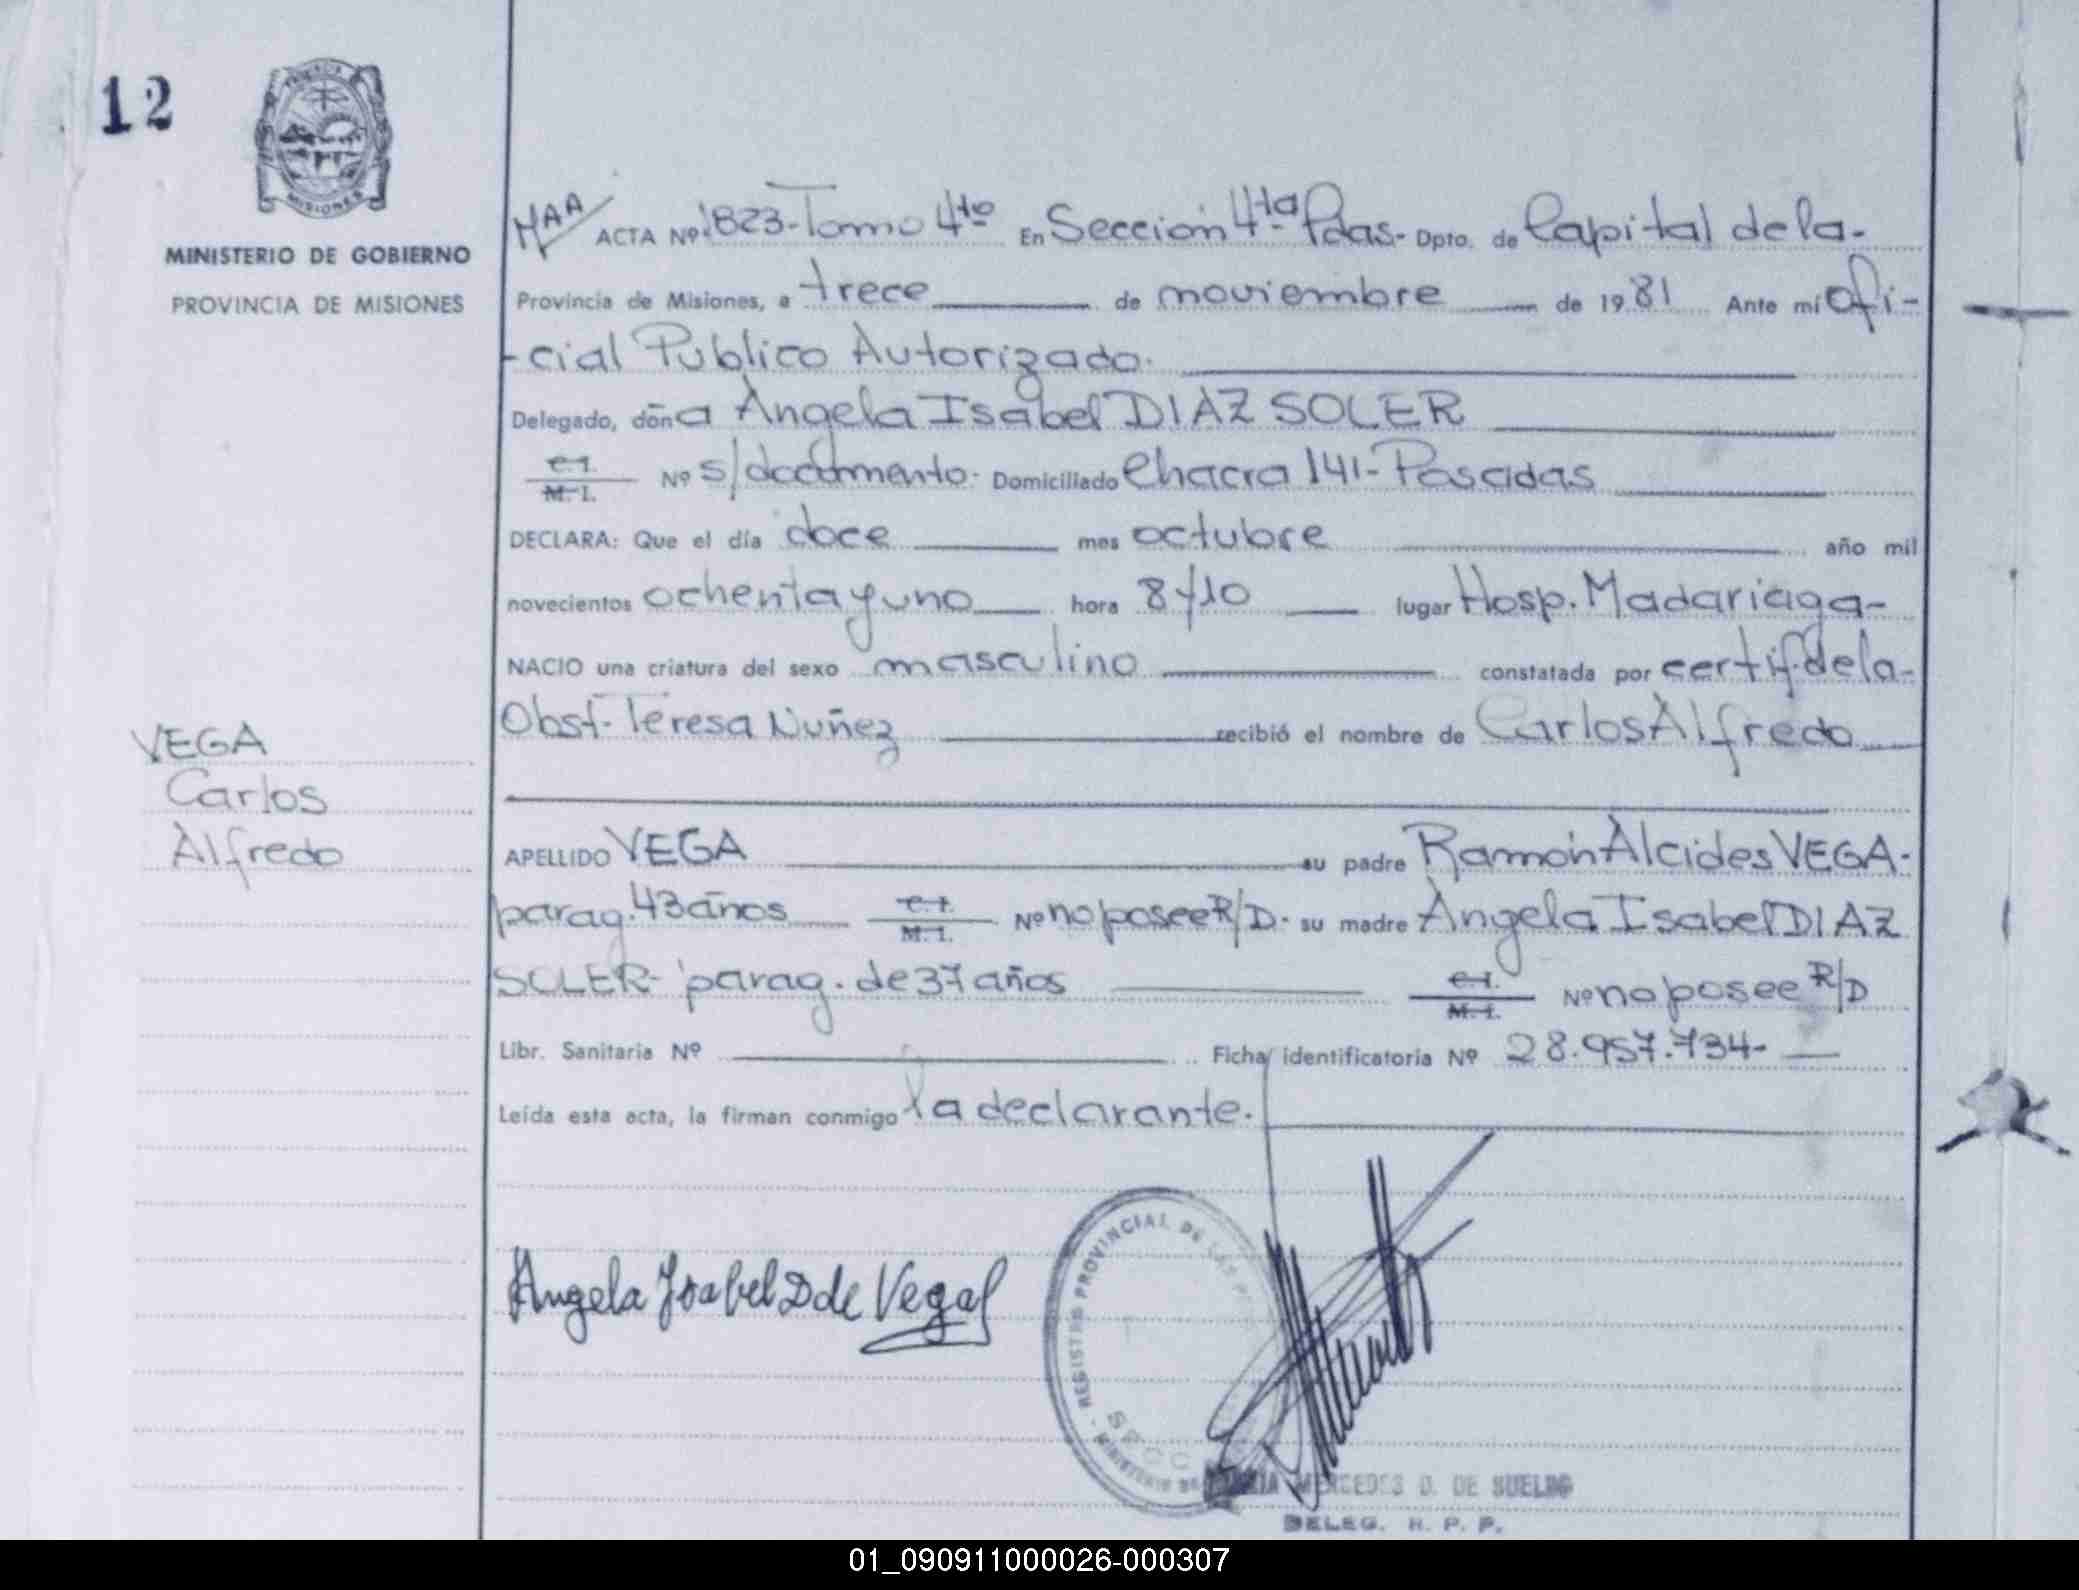 12
MISIONES
MINISTERIO DE GOBIERNO
PROVINCIA DE MISIONES
VEGA
Carlos
Alfredo
MAA ACTA Nº 1823-Tomo 4to En Sección 4ta Pdas- Dpto. de Capital de la-
Provincia de Misiones, a trece de noviembre de 1981 Ante mí Ofi-
-cial Público Autorizado.
Delegado, doña Angela Isabel DIAZ SOLER
C.I. M.I. Nº s/documento- Domiciliado Chacra 141-Posadas
DECLARA: Que el día doce mes octubre año mil
novecientos ochenta y uno hora 8y10 lugar Hosp. Madariaga-
NACIO una criatura del sexo masculino constatada por certif. de la-
Obst- Teresa Nuñez recibió el nombre de Carlos Alfredo
APELLIDO VEGA su padre Ramón Alcides VEGA-
parag. 43 años C.I. M.I. Nº no posee R/D- su madre Angela Isabel DIAZ
SOLER- parag. de 37 años C.I. M.I. Nº no posee R/D
Libr. Sanitaria Nº Ficha identificatoria Nº 28.957.734-
Leída esta acta, la firman conmigo la declarante.
Angela Isabel D de Vega
REGISTRO PROVINCIAL DE LAS
MINISTERIO DE
SECC
MARIA MERCEDES D. DE SUELDO
DELEG. R. P. P.
01_090911000026-000307